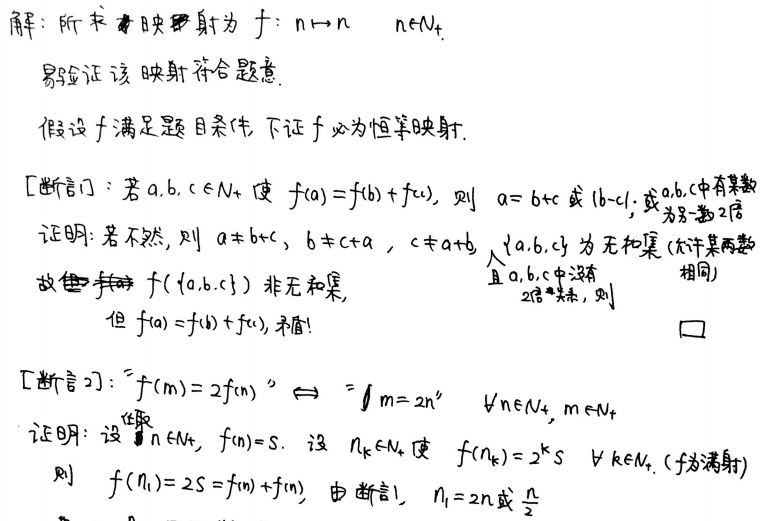 解：所求映射为 f：n↦n n∈N₊.
易验证该映射符合题意.
假设 f 满足题目条件，下证 f 必为恒等映射.
[断言1]：若 a,b,c∈N₊ 使 f(a)=f(b)+f(c)，则 a=b+c 或 |b-c|；或 a,b,c中有某数为另一数2倍
证明：若不然，则 a≠b+c，b≠c+a，c≠a+b，且 a,b,c 中没有2倍关系，则 {a,b,c} 为无和集（允许某两数相同）
故 f({a,b,c}) 非无和集，
但 f(a)=f(b)+f(c)，矛盾！ □
[断言2]：“f(m)=2f(n)” ⇔ “m=2n” ∀n∈N₊，m∈N₊
证明：任取 n∈N₊，f(n)=s. 设 nₖ∈N₊ 使 f(nₖ)=2ᵏs ∀k∈N₊.（f为满射）
则 f(n₁)=2s=f(n)+f(n)，由断言1，n₁=2n或 n/2